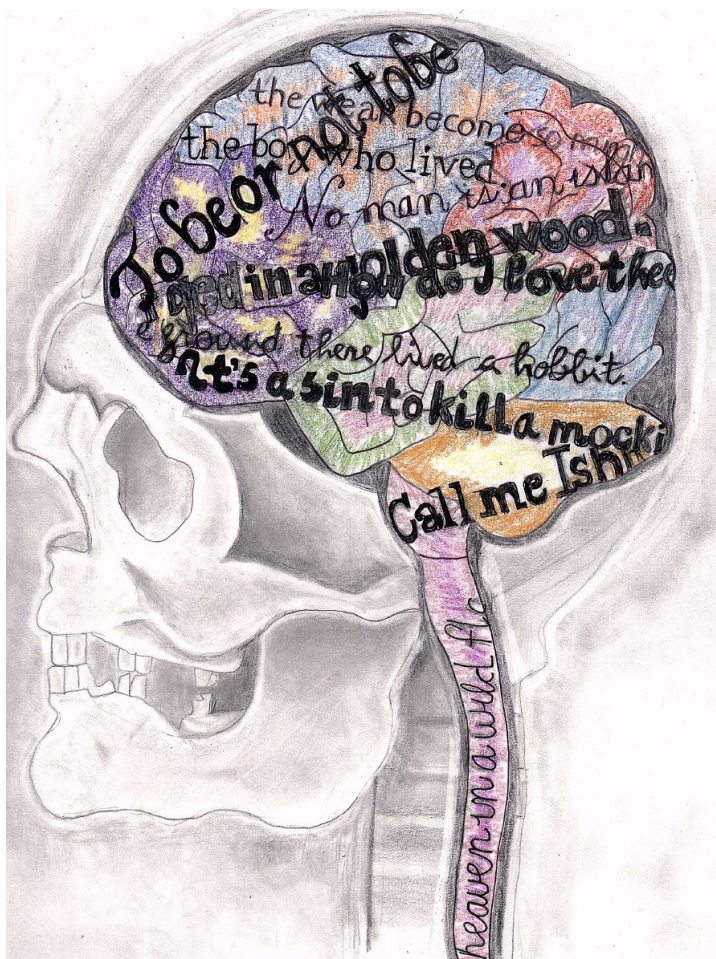 the weak become so
the boy who lived
To be or not to be
No man is an islan
ged in a golden wood.
How do I love thee
ground there lived a hobbit.
It's a sin to kill a mocki
Call me Ishm
heaven in a wild flo